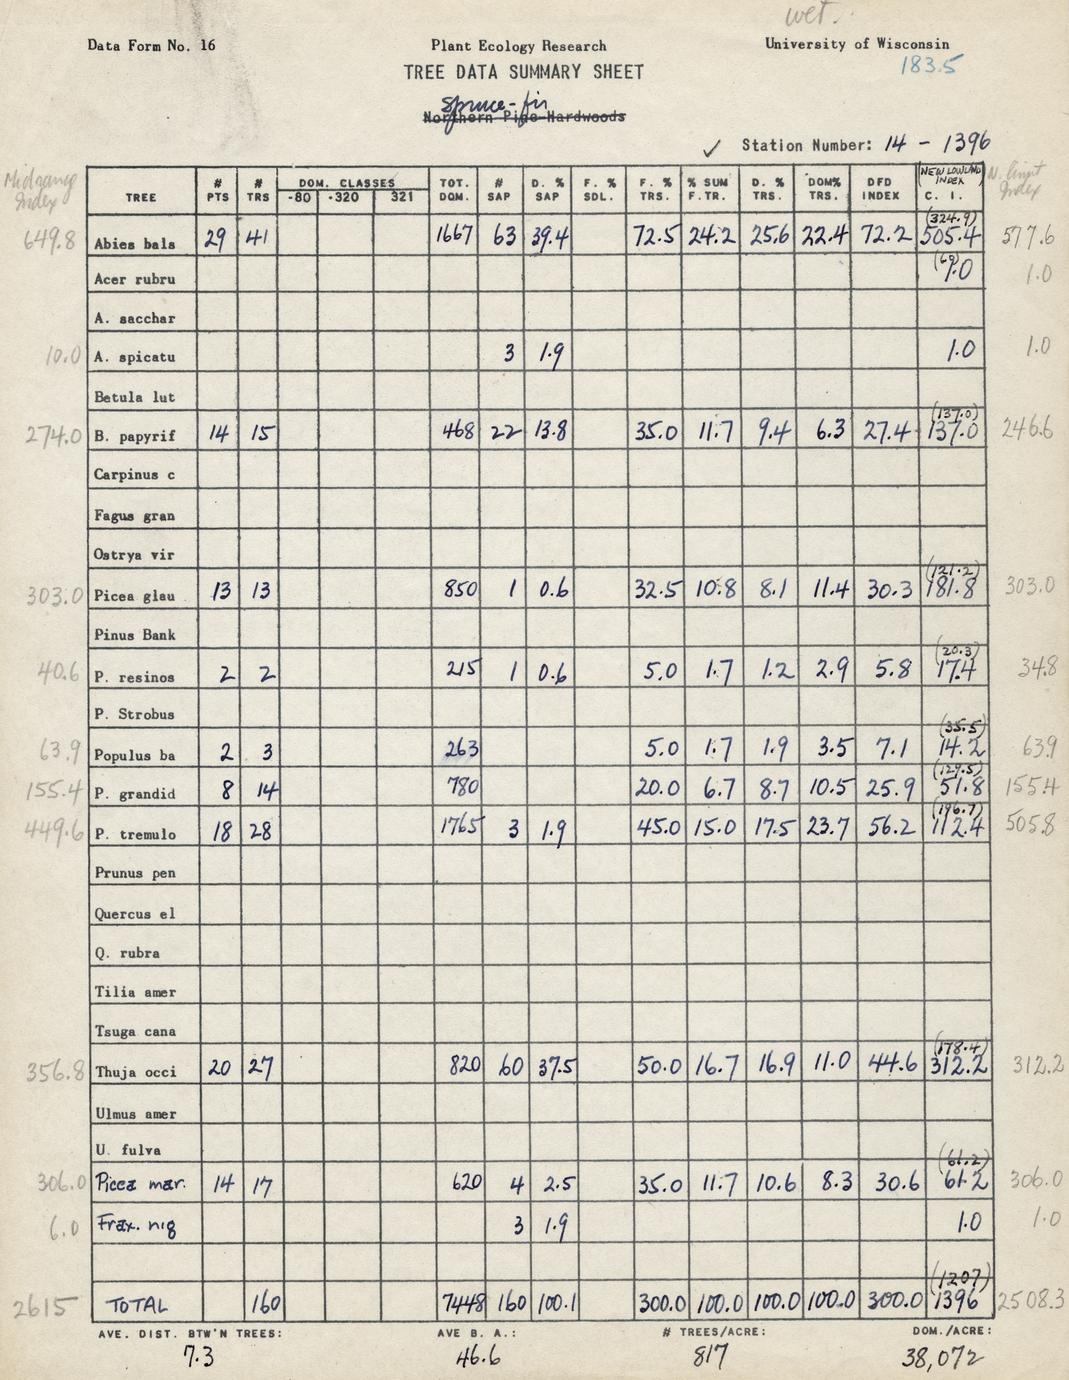 wet.
Data Form No. 16 Plant Ecology Research University of Wisconsin
183.5
TREE DATA SUMMARY SHEET
Spruce-fir
Northern Pine Hardwoods
✓ Station Number: 14 - 1396
Midrange Index TREE # PTS # TRS DOM. CLASSES -80 -320 321 TOT. DOM. # SAP D. % SAP F. % SDL. F. % TRS. % SUM F.TR. D. % TRS. DOM% TRS. DFD INDEX (NEW LOWLAND INDEX) C. I. N. limit Index
(324.9)
649.8 Abies bals 29 41 1667 63 39.4 72.5 24.2 25.6 22.4 72.2 505.4 577.6
Acer rubru 1.0 1.0
A. sacchar
10.0 A. spicatu 3 1.9 1.0 1.0
Betula lut
(137.0)
274.0 B. papyrif 14 15 468 22 13.8 35.0 11.7 9.4 6.3 27.4 137.0 246.6
Carpinus c
Fagus gran
Ostrya vir
(121.2)
303.0 Picea glau 13 13 850 1 0.6 32.5 10.8 8.1 11.4 30.3 181.8 303.0
Pinus Bank
(20.3)
40.6 P. resinos 2 2 215 1 0.6 5.0 1.7 1.2 2.9 5.8 17.4 34.8
P. Strobus
(35.5)
63.9 Populus ba 2 3 263 5.0 1.7 1.9 3.5 7.1 14.2 63.9
(129.5)
155.4 P. grandid 8 14 780 20.0 6.7 8.7 10.5 25.9 51.8 155.4
(196.7)
449.6 P. tremulo 18 28 1765 3 1.9 45.0 15.0 17.5 23.7 56.2 112.4 505.8
Prunus pen
Quercus el
Q. rubra
Tilia amer
Tsuga cana
(178.4)
356.8 Thuja occi 20 27 820 60 37.5 50.0 16.7 16.9 11.0 44.6 312.2 312.2
Ulmus amer
U. fulva
(61.2)
306.0 Picea mar. 14 17 620 4 2.5 35.0 11.7 10.6 8.3 30.6 61.2 306.0
6.0 Frax. nig 3 1.9 1.0 1.0
(1207)
2615 TOTAL 160 7448 160 100.1 300.0 100.0 100.0 100.0 300.0 1396 2508.3
AVE. DIST. BTW'N TREES: AVE B. A.: # TREES/ACRE: DOM./ACRE:
7.3 46.6 817 38,072